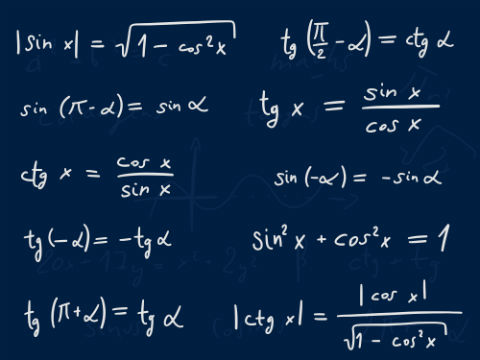 |sin x| = √(1 - cos²x)
tg (π/2 - α) = ctg α
sin (π - α) = sin α
tg x = sin x / cos x
ctg x = cos x / sin x
sin (-α) = - sin α
tg (-α) = - tg α
sin² x + cos² x = 1
tg (π + α) = tg α
|ctg x| = |cos x| / √(1 - cos² x)